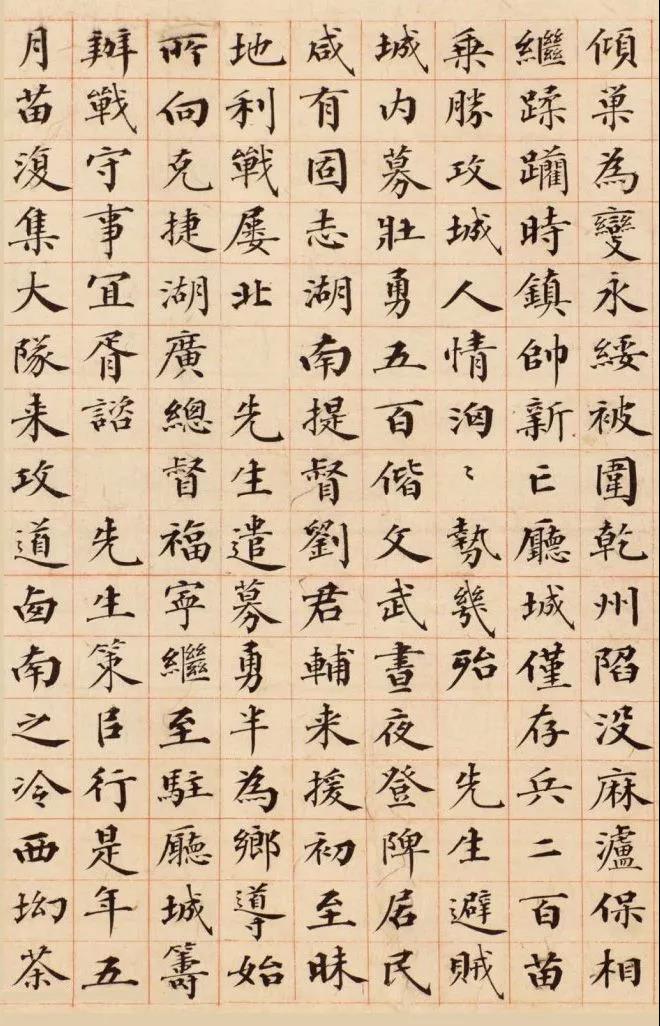 傾巢為變永綏被圍乾州陷没麻瀘保相
繼蹂躪時鎮帥新亡廳城僅存兵二百苗
乗勝攻城人情洶〻勢幾殆 先生避賊
城内募壯勇五百偕文武晝夜登陴居民
咸有固志湖南提督劉君輔来援初至昧
地利戰屢北 先生遣募勇半為鄉導始
所向克捷湖廣總督福寧繼至駐廳城籌
辦戰守事宜胥諮 先生策以行是年五
月苗復集大隊来攻道西南之冷西坳茶